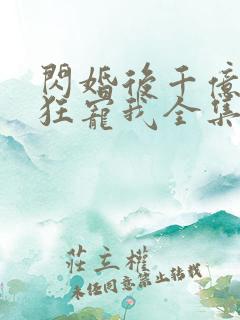 閃婚後千億
狂寵我全集
莊立權
未任同意禁止轉載